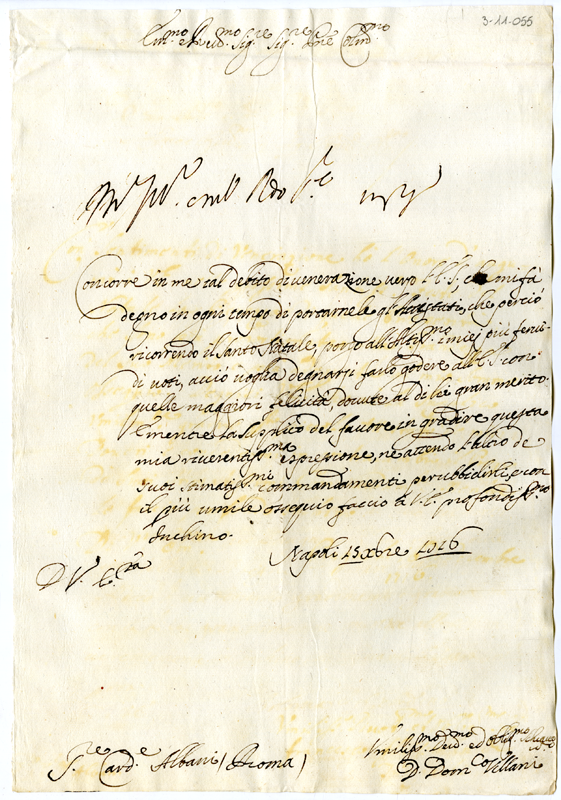 3-11-055
Em.mo e Rev.mo Sig.re Sig.re P.ne Col.mo
Concorre in me tal debito di venerazione verso l'E.V. che mi fà
degno in ogni tempo di portarnele gl'attestati, che perciò
ricorrendo il Santo Natale, porgo all'Altis.mo i miej più fervi-
di voti, acciò voglia degnarsi farlo godere all'E.V. con
quelle maggiori felicità, dovute al di lei gran merito.
Mentre la supplico del favore in gradire questa
mia riverentis.ma espressione, ne attendo l'alto de
suoi stimatis.mi commandamenti per ubbidirli, e con
il più umile ossequio faccio à V.E. profondis.mo
Inchino.
Napoli 15 Xbre 1716
D V. E.za
S.re Card.e Albani (Roma)
Umilis.mo Dev.mo ed Oblig.mo
D. Dom.co Villani